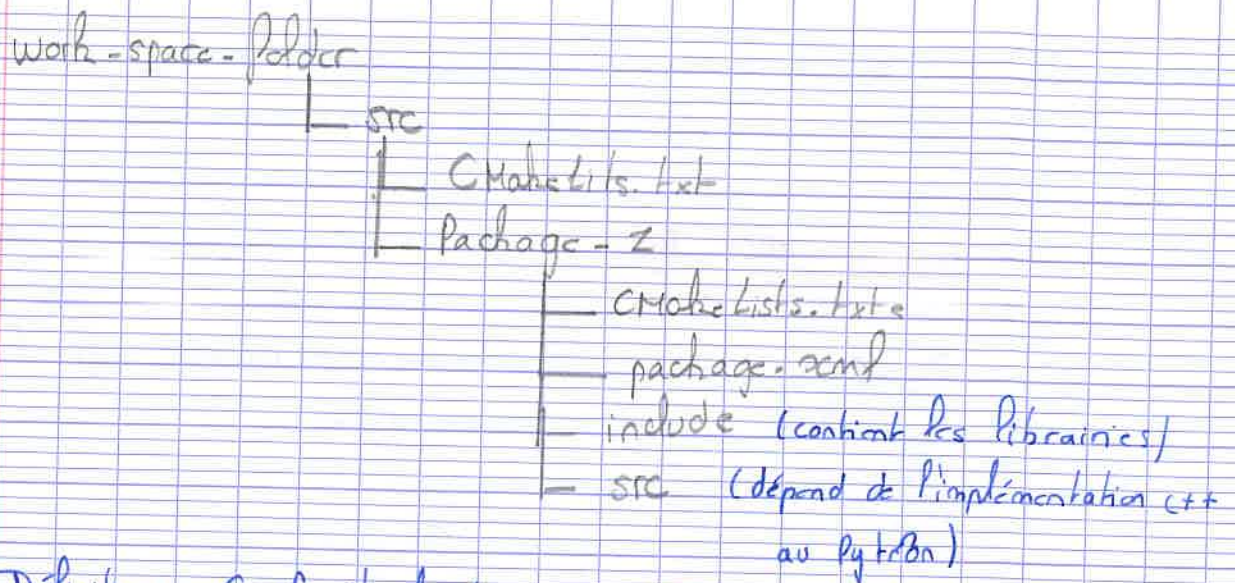 work-space-folder
src
CMakeLits.txt
Package - Z
CMakeLists.txte
package.xml
include (contient les librairies)
src (dépend de l'implémentation C++
au Python)